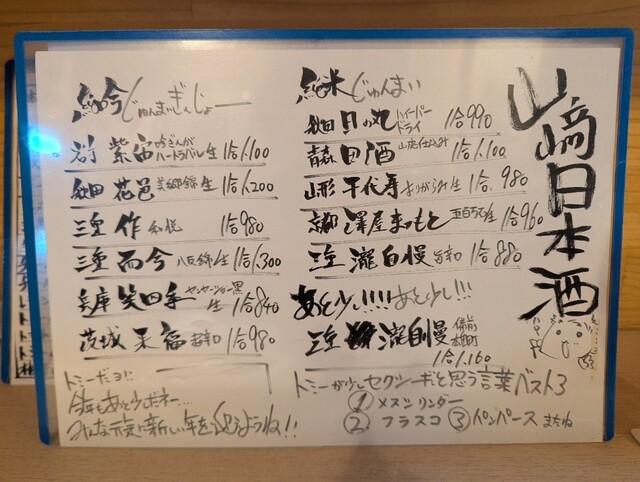 山﨑日本酒
純米 じゅんまい
秋田 貝の丸 ハイパードライ 1合990
青森 田酒 山廃仕込み 1合1,100
山形 千代寿 生 1合 980
京都 澤屋まつもと 五百万石生 1合960
三重 瀧自慢 辛和 1合880
あと少し!!!! あと少し!!!
三重 瀧自慢 備前雄町
1合1,160
純吟 じゅんまいぎんじょー
紫宙 吟ぎんが ハートラベル生 1合1,100
秋田 花邑 美郷錦 生 1合1,200
三重 作 和悦 1合980
三重 而今 八反錦生 1合1,300
兵庫 笑四季 センセーション黒 生 1合840
茨城 来福 1合980
トミーだヨ!!
今年もあと少しだネ…
みんな元気に新しい年を迎えようね!!
トミーが少しセクシーだと思う言葉ベスト3
① メスシリンダー
② フラスコ ③ パンパース またね